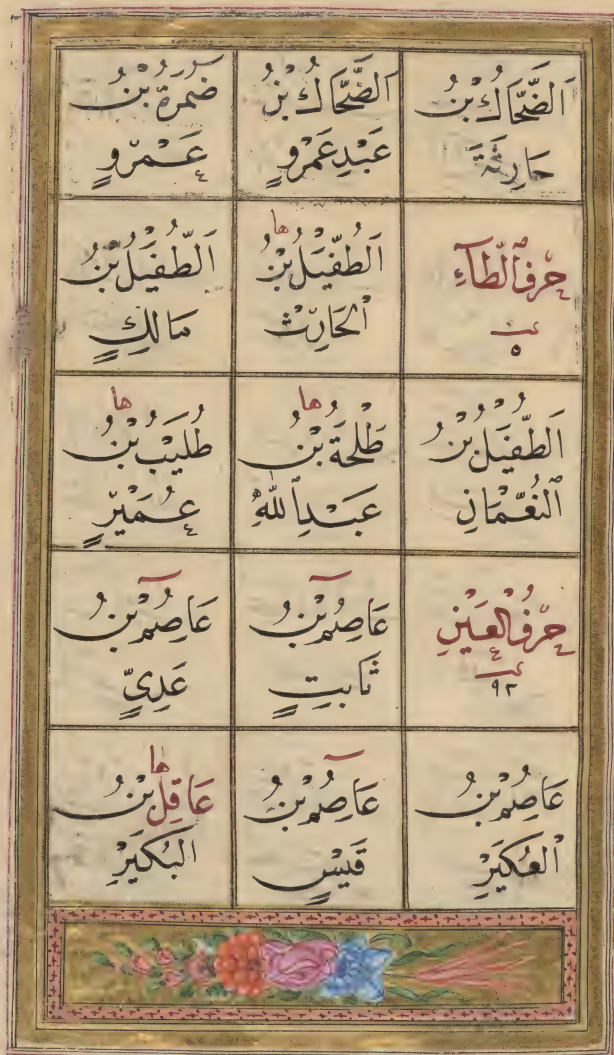 اَلضَّحَّاكُ بْنُ
حَارِثَةَ
اَلضَّحَّاكُ بْنُ
عَبْدِ عَمْرٍو
ضَمْرَةُ بْنُ
عَمْرٍو
حَرْفُ الطَّاءِ
٥
اَلطُّفَيْلُ بْنُ
ها
الْحَارِثِ
اَلطُّفَيْلُ بْنُ
مَالِكٍ
اَلطُّفَيْلُ بْنُ
النُّعْمَانِ
ها
طَلْحَةُ بْنُ
عَبْدِ اللّٰهِ
ها
طُلَيْبُ بْنُ
عُمَيْرٍ
حَرْفُ الْعَيْنِ
٩٢
عَاصِمُ بْنُ
ثَابِتٍ
عَاصِمُ بْنُ
عَدِيٍّ
عَاصِمُ بْنُ
الْعُكَيْرِ
عَاصِمُ بْنُ
قَيْسٍ
ها
عَاقِلُ بْنُ
الْبُكَيْرِ